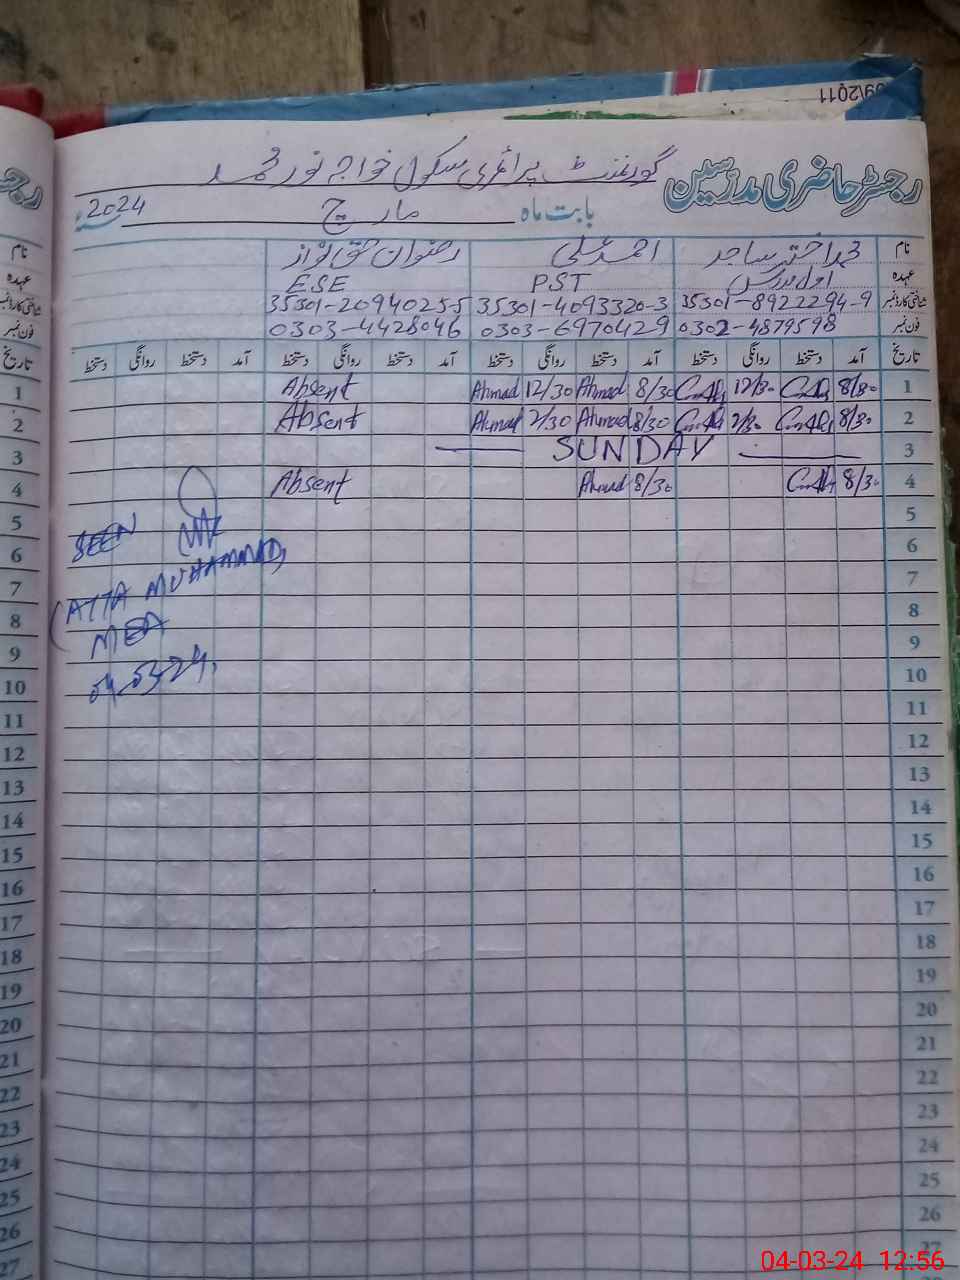 09\2011
رجسٹر حاضری مدرسین گورنمنٹ پرائمری سکول خواجہ نور محمد
بابت ماہ مارچ 2024ء
نام محمد اختر ساجد احمد علی رضوان حق نواز
عہدہ اول مدرس PST ESE
شناختی کارڈ نمبر 35301-8922294-9 35301-4093320-3 35301-2094025-5
فون نمبر 0302-4879598 0303-6970429 0303-4428046
تاریخ آمد دستخط روانگی دستخط آمد دستخط روانگی دستخط آمد دستخط روانگی دستخط آمد دستخط روانگی دستخط
1 8/30 12/30 8/30 Ahmad 12/30 Ahmad Absent
2 8/30 2/30 8/30 Ahmad 2/30 Ahmad Absent
3 SUNDAY
4 8/30 8/30 Ahmad Absent
5
SEEN
6
(ATTA MUHAMMAD)
7
8
MEA
9
04.03.24
10
11
12
13
14
15
16
17
18
19
20
21
22
23
24
25
26
27
04-03-24 12:56